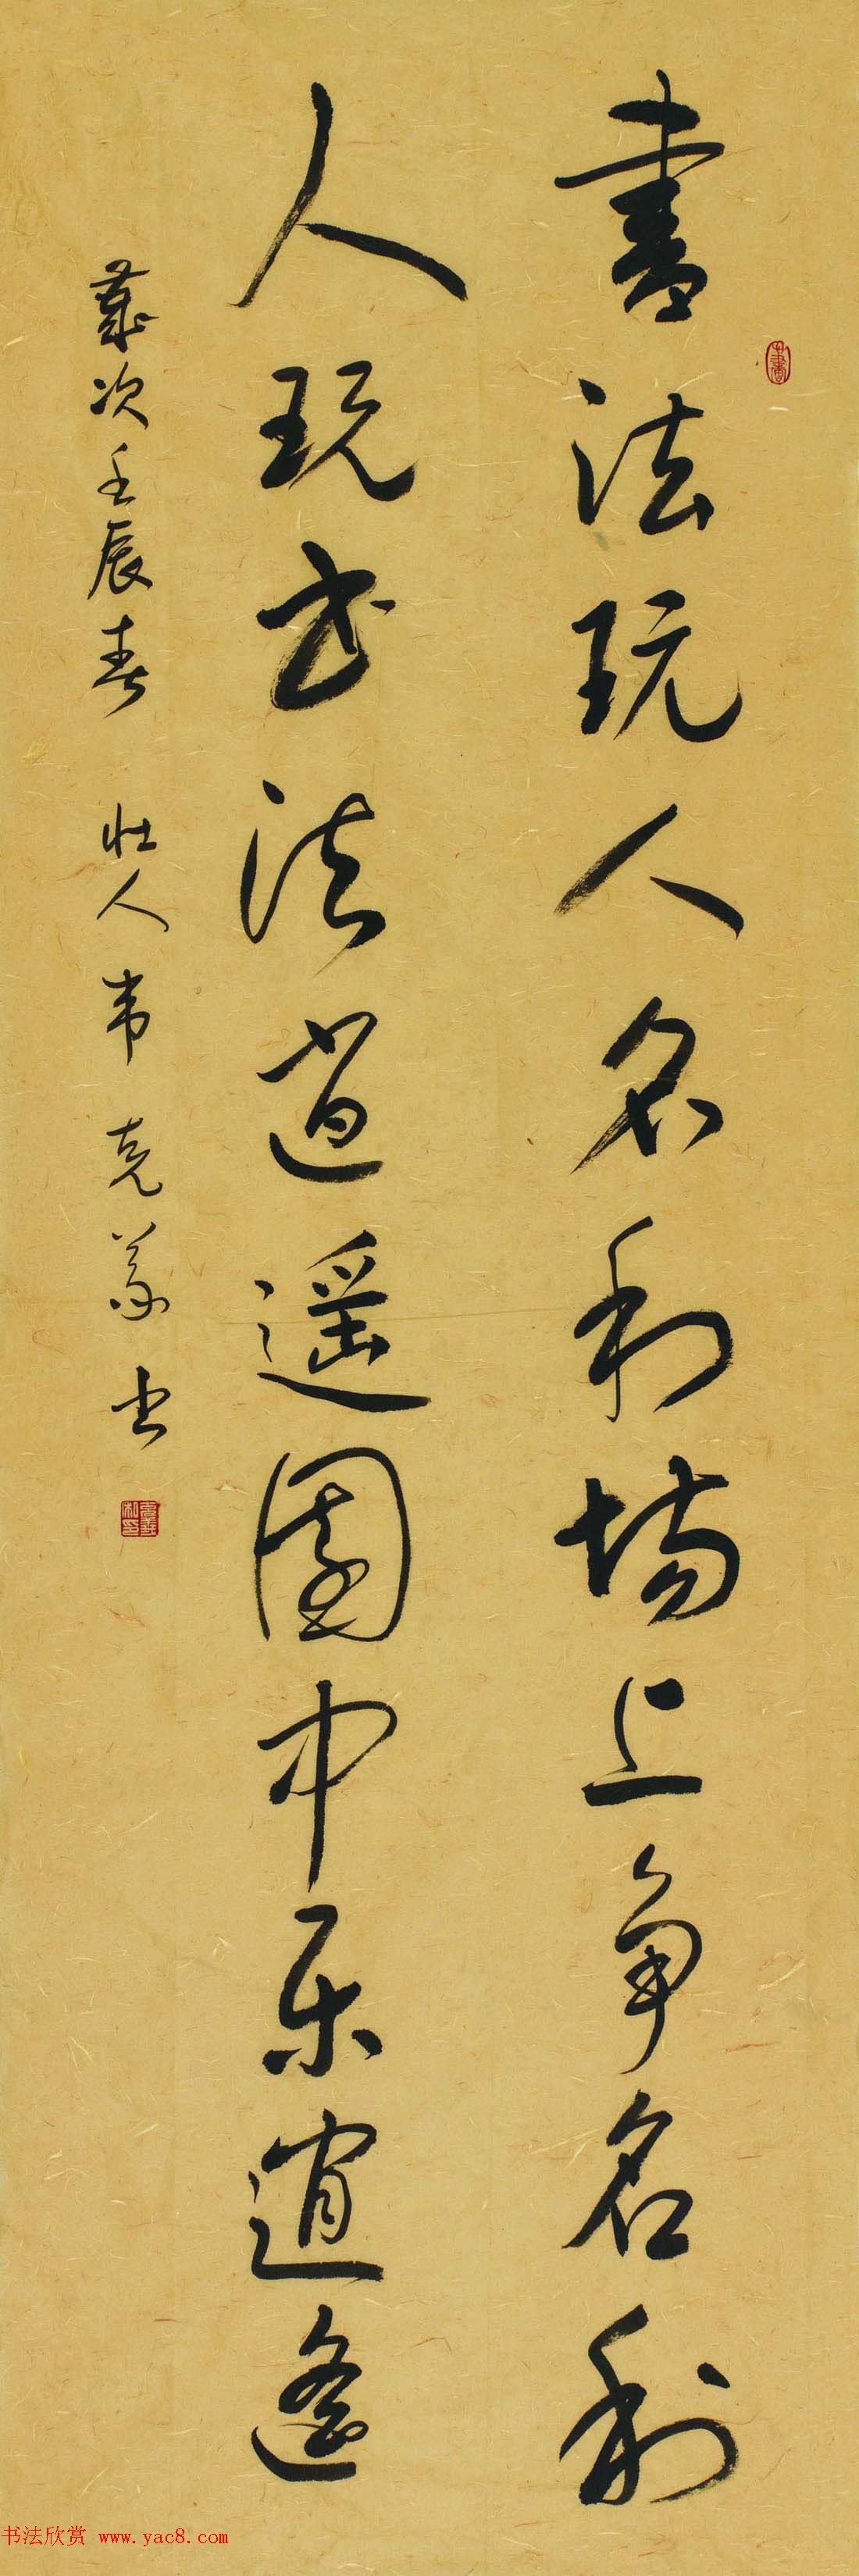 書法玩人名利場上争名利
人玩书法逍遥園中乐逍遥
歲次壬辰春 壮人韦克義书
书法欣赏 www.yac8.com